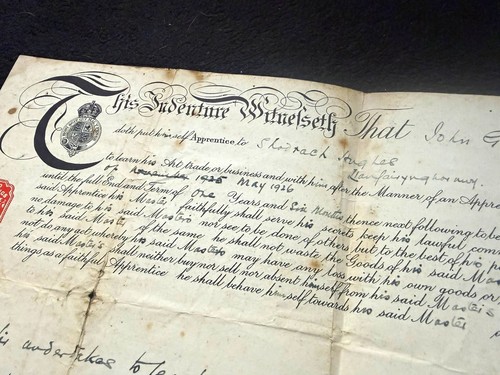 This Indenture Witnesseth That John G
doth put himself Apprentice to Shadrach Hughes
Llanfairynghornwy
to learn his Art trade or business and with him after the Manner of an Appre
November 1925 May 1926
until the full End and Term of One Years and Six Months thence next following to be
said Apprentice his Master faithfully shall serve his secrets keep his lawful comm
no damage to his said Master nor see to be done of others but to the best of his
to his said Master of the same he shall not waste the Goods of his said Mas
not do any act whereby his said Master may have any loss with his own goods or
his said Master's shall neither buy nor sell nor absent himself from his said Master's
things as a faithful Apprentice he shall behave himself towards his said Master
undertakes to